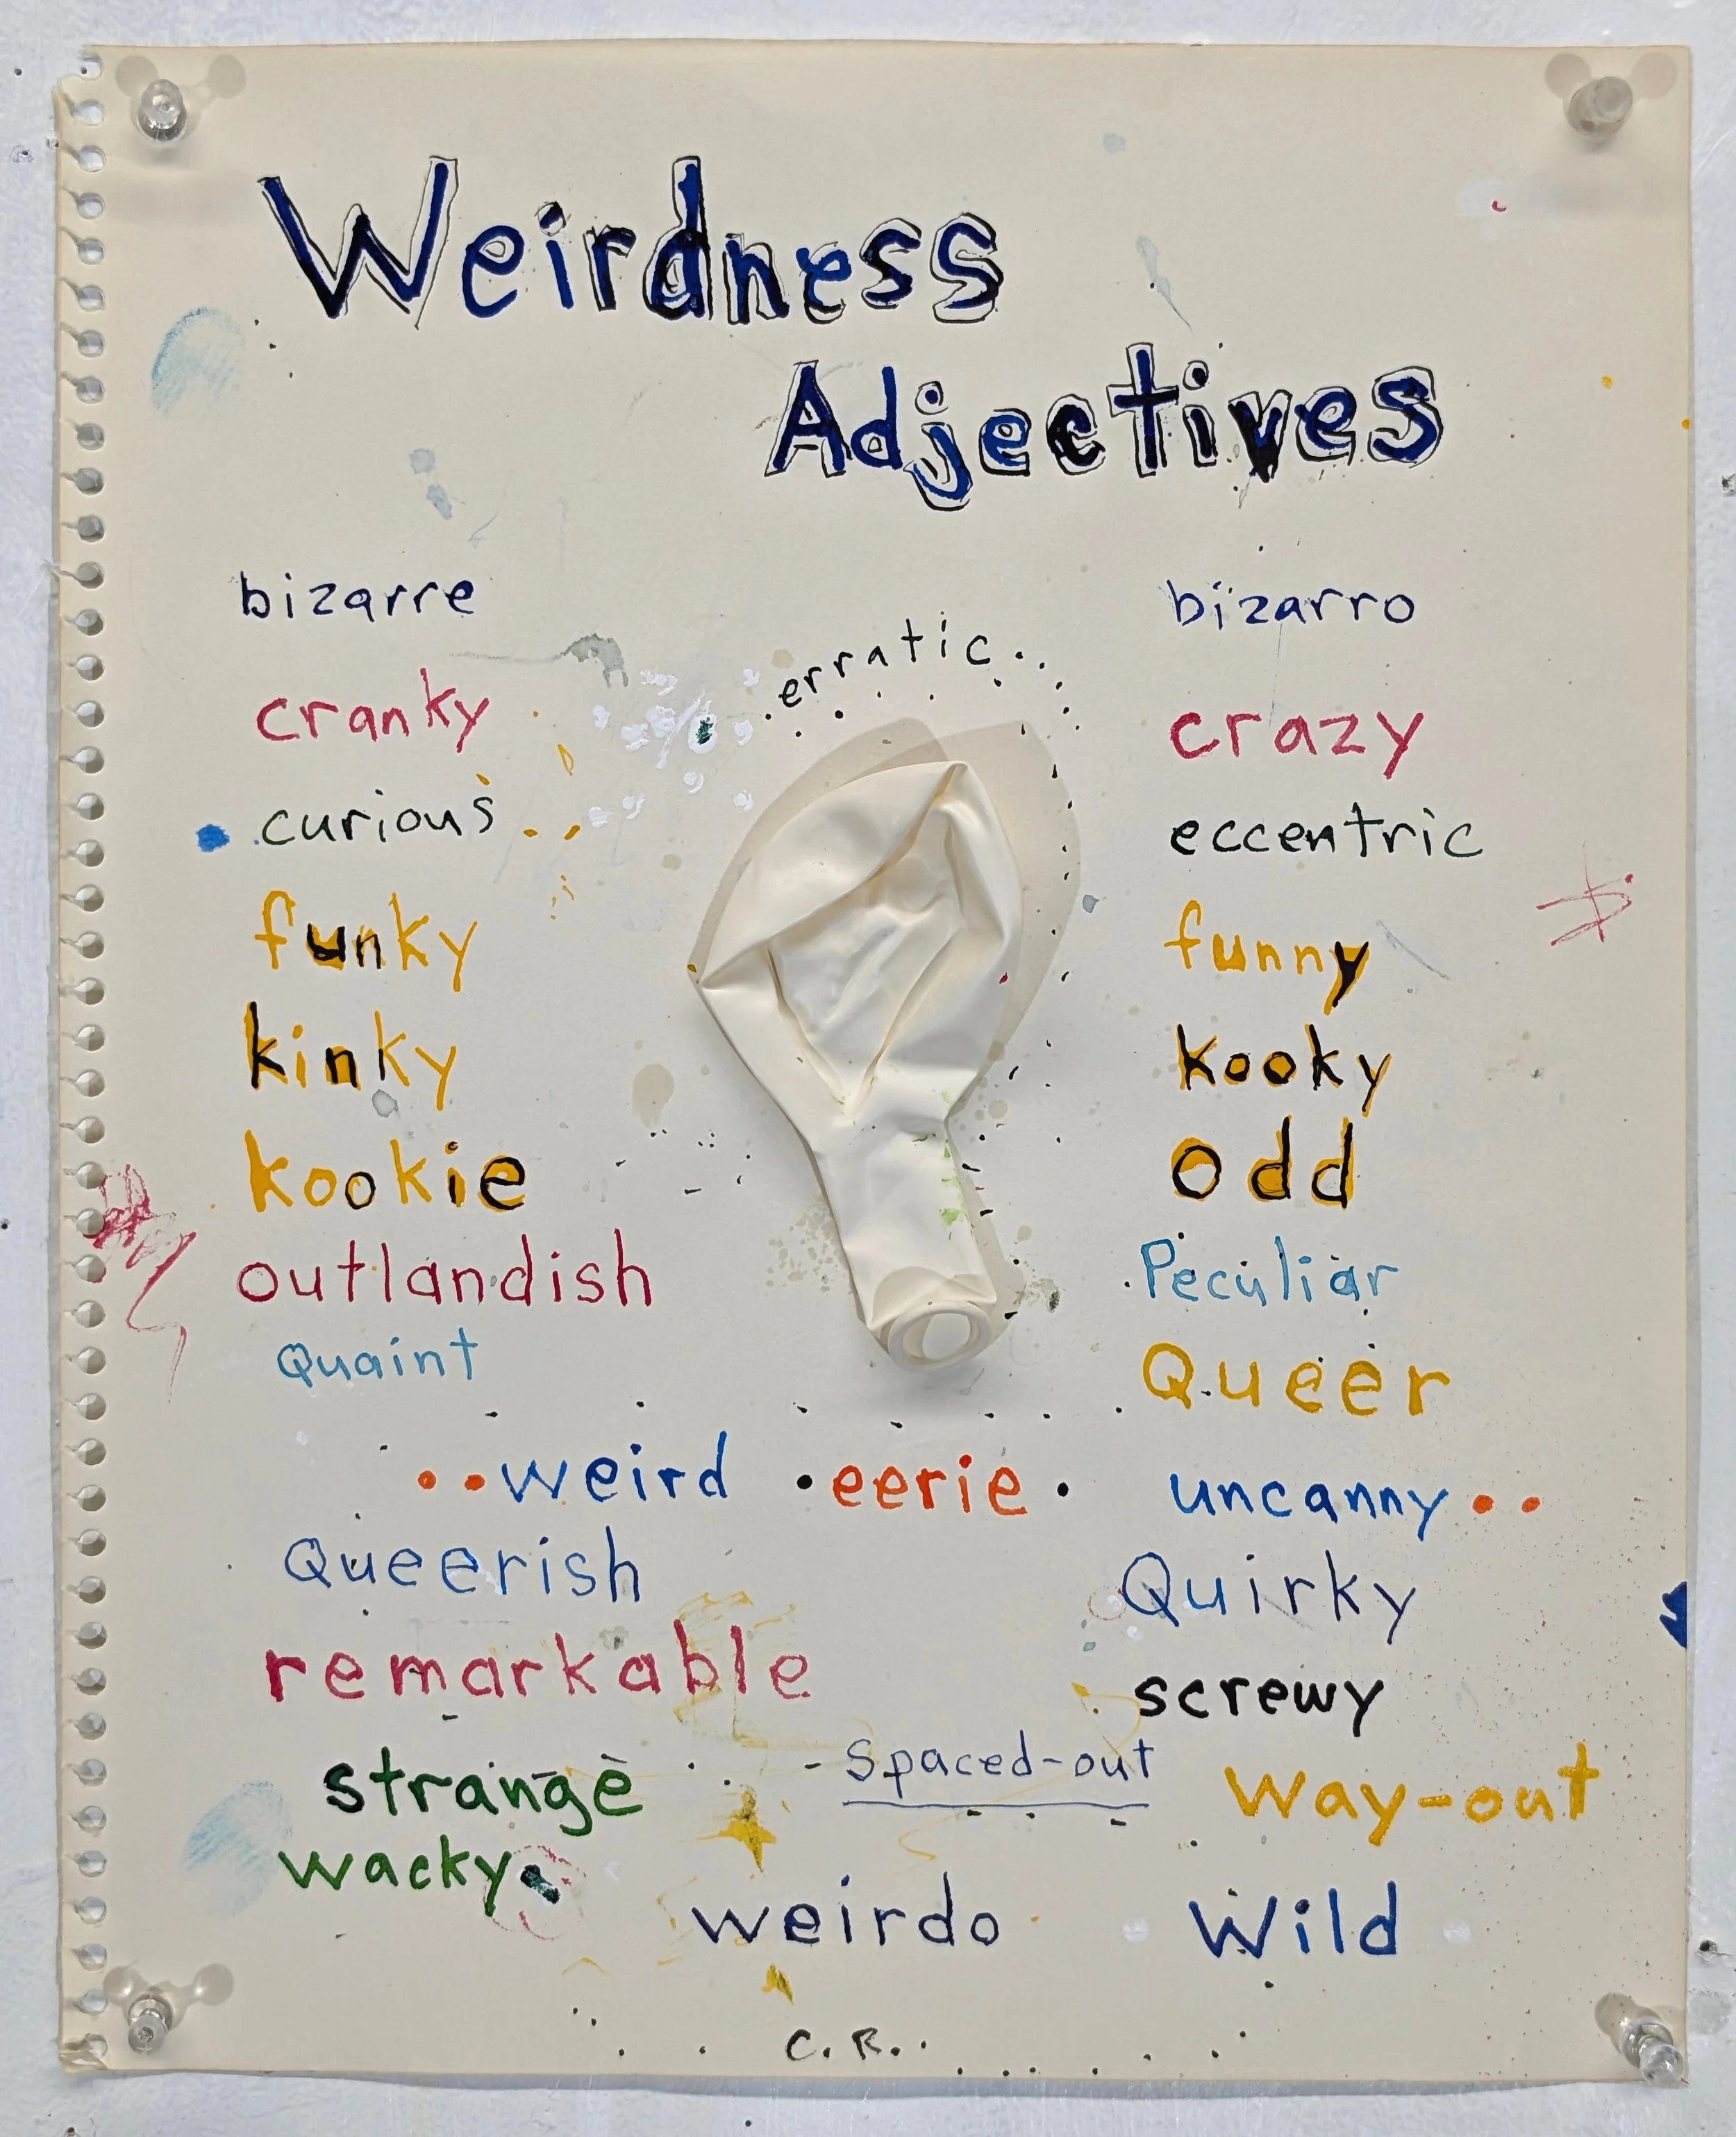 Weirdness
Adjectives
bizarre
bizarro
erratic..
cranky
crazy
curious
eccentric
funky
funny
kinky
kooky
kookie
odd
outlandish
Peculiar
Quaint
Queer
weird
eerie
uncanny
Queerish
Quirky
remarkable
screwy
strange
Spaced-out
way-out
wacky
weirdo
Wild
C.R.